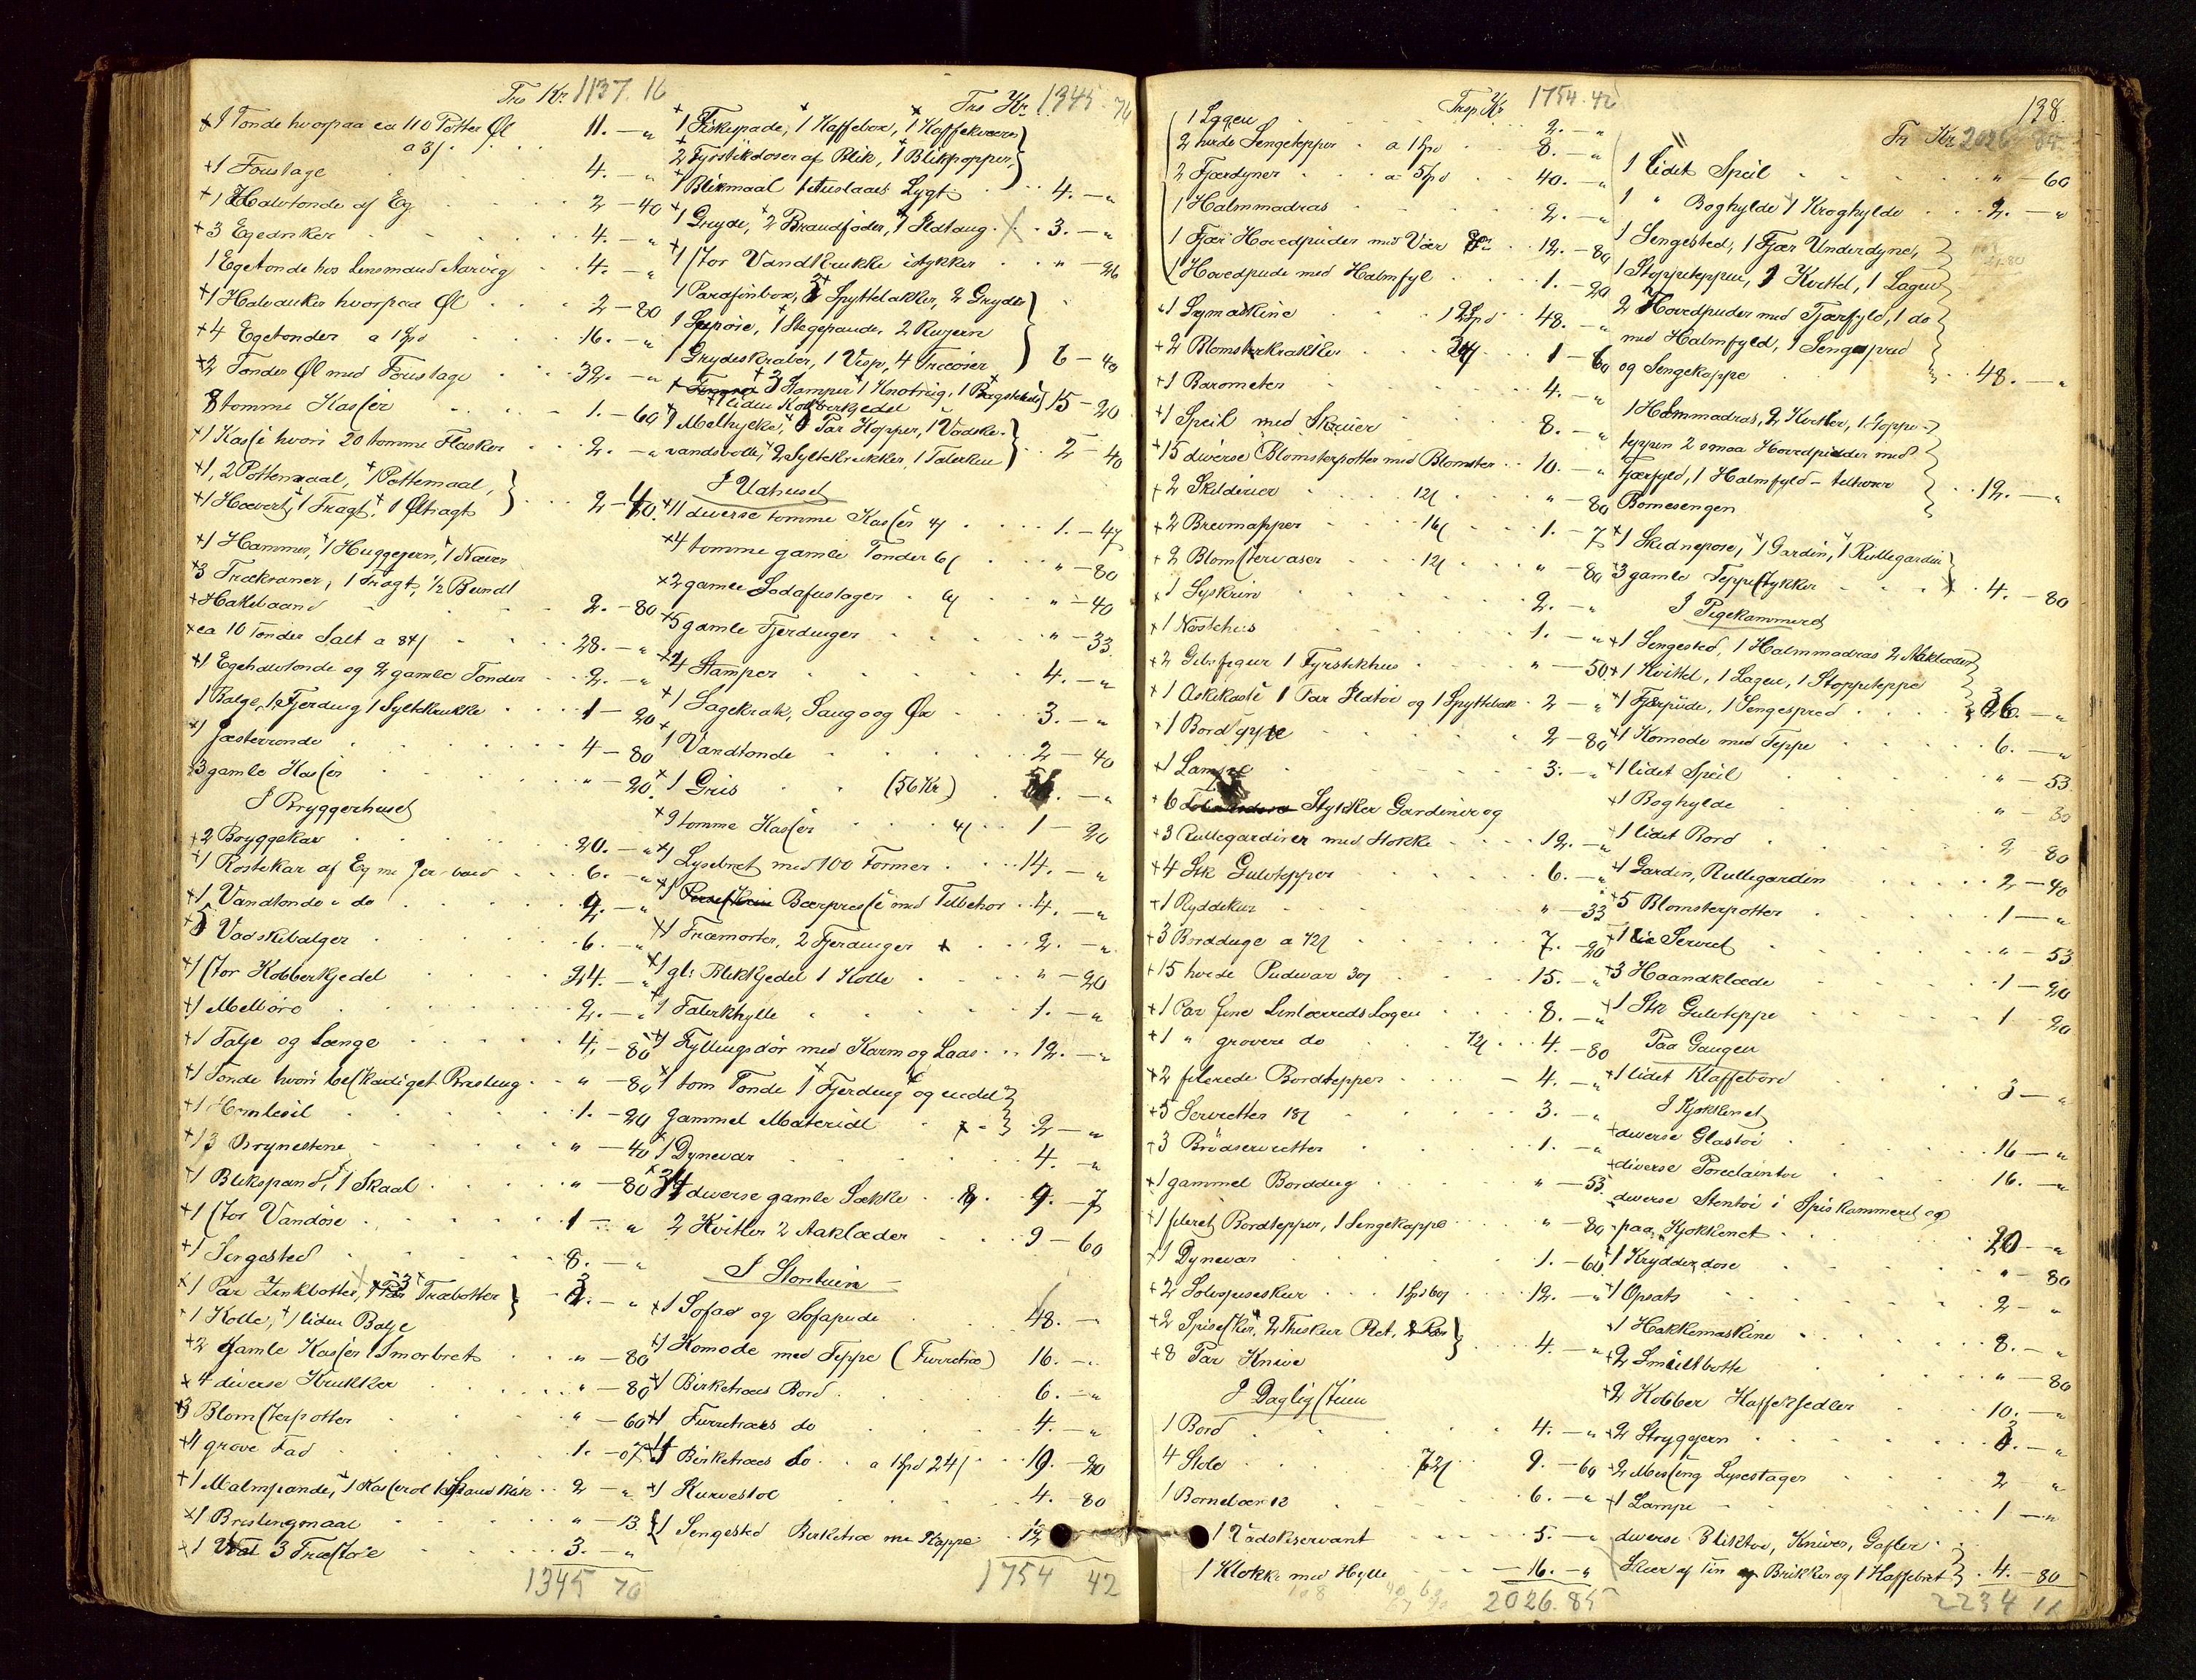 Trs Kr 1137.16
+1 Tonde hvorpaa ca 110 Potter Øl
a 3/ . . . 11. — "
+1 Foustage 4. — "
+1 Halvtonde af Eg 2 — 40
+3 Egedriker 4. — "
1 Egetonde hos Lensmand Aarvig 4. — "
+1 Halvanker hvorpaa Øl 2 — 80
+4 Egetonder a 1 Spd 16. — "
+2 Tonder Øl med Foustage 32. — "
8 tomme Kasser 1. — 60
+1 Kasse hvori 20 tomme Flasker 2. — "
+1, 2 Pottemaal, +1 Pottemaal,
+1 Hævert, +1 Tragt, +1 Øltragt 2 — 40
+1 Hammer, +1 Huggejern, +1 Naver
+3 Trækraner, 1 Tragt, 1/2 Bundt
+Hakebaand 2. — 80
+ca 10 Tonder Salt a 84/ 28. — "
+1 Egehalvtonde og 2 gamle Tonder 2. — "
1 Balge, 1 Fjerding 1 Syltekrukke 1 — 20
+1 Jæsterronde 4 — 80
+3 gamle Kasser " — 20
I Bryggerhuset
+2 Bryggekar 20. — "
+1 Rostekar af Eg m Jernbaand 6. — "
+1 Vandtonde " do 4. — "
+5 Vadskebalger 6. — "
+1 stor Kobberkjedel 24. — "
+1 Melbøre 2. — "
+1 Talje og Længe 4. — 80
+1 Tonde hvori beskadiget Brisling " — 80
+1 Homlesil 1. — 20
+13 Brynestene " — 40
+1 Blikspand, +1 Skaal " — 80
+1 stor Vandøse 1 — "
+1 Sengested 8. — "
+1 Par Zinkbotter, 3 Træbotter 3. — "
+1 Kolle, +1 liden Balje
+2 gamle Kasser 1 Smorbret " — 80
+4 diverse Krukker " — 80
+3 Blomsterpotter " — 60
+4 grove Fad 1. — 07
+1 Malmpande, +1 Kasserol 2 — "
+1 Brislingmaal " — 13
+1 3 Træstole 3. — "
1345 76
Trs Kr. 1345.76
+1 Fiskespade, +1 Kaffeboxe, +1 Kaffekværn
+2 Fyrstikdoser af Blik, +1 Blikpopper,
+1 Blikmaal 1 Lygt 4. — "
+1 Gryde, +2 Brandfoder, +1 Ildtang 3. — "
+1 stor Vandkrukke istykker " — 26
1 Parafinboxe, 2 Spyttebakker, 2 Gryder
1 Suppøse, 1 Stegepande, 2 Rugjern
1 Grydeskraber, 1 Visp, 4 Træører 6 — 40
+3 Stamper +1 Knotrug, 1 Bagstehelle 15 — 20
+1 liden Kobberkjedel
+1 Melhylke, 1 Par Kopper, 1 Vadske-
vandsbolle, +2 Syltekrukker, 1 Talerken 2 — 40
I Udhuset
+11 diverse tomme Kasser 4/ 1. — 47
+4 tomme gamle Tonder 6/ " — 80
+2 gamle Sodafustager 6/ " — 40
+5 gamle Fjerdinger " — 33
+4 Stamper 4. — "
+1 Sagekrak, Saug og Øx 3. — "
+1 Vandtonde 2 — 40
+1 Gris (56 Kr) 56. — "
+9 tomme Kasser 4/ 1 — 20
+1 Lysebret med 100 Former 14. — "
+1 Bærpresse med Tilbehor 4. — "
+1 Træmorter, 2 Fjerdinger + 2. — "
+1 gl: Blikkjedel 1 Kolle " — 20
+1 Talerkhylle 1. — "
+1 Fyllingsdør med Karm og Laas 12. — "
+1 tom Tonde 1 Fjerding og endel
gammel Materiel 2 — "
+1 Dynevar 4. — "
+34 diverse gamle Sække 8/ 9. — 7
2 Kvitler 2 Aaklæder 9 — 60
I Storstuen
+1 Sofas og Sofapude 48. — "
+1 Komode med Teppe (Furretræ) 16. — "
+1 Birketræes Bord 6. — "
+1 Furretræes do 4. — "
+4 Birketræes do a 1 Spd 24/ 19. — 20
+1 Kurvestol 4. — 80
+1 Sengested Birketræ m Kappe 12
1754 42
Trsp Kr 1754.42
1 Lagen 2. — "
2 hvide Sengetepper a 1 Spd 8. — "
2 Fjærdyner a 5 Spd 40. — "
1 Halmmadras 2. — "
1 Fjær Hovedpuder med Vaar 12. — 80
1 Hovedpude med Halmfyl 1. — 20
+1 Symaskine 12 Spd 48. — "
+2 Blomsterkrakker 24/ 1 — 60
+1 Barometer 4. — "
+1 Speil med Skruer 8. — "
+15 diverse Blomsterpotter med Blomster 10. — "
+2 Skilderier 12/ " — 80
+2 Brevmapper 16/ 1. — 7
+2 Blomstervaser 12/ " — 80
+1 Syskrin 2. — "
+1 Nøstehus 1. — "
+2 Gibsfigur 1 Fyrstikhus " — 50
+1 Askekaste 1 Par Ildtøi og 1 Spyttebak 2 — "
+1 Bord 2 — 80
+1 Lampe 3. — "
+6 Stykker Gardiner og
+3 Rullegardiner med Stokke 12. — "
+4 Stk Gulvtepper 6. — "
+1 Ryddekur " — 33
+3 Bordduge a 72/ 7. — 20
+15 hvide Pudevar 30/ 15. — "
+1 Par fine Linlærreds Lagen 8. — "
+1 " grovere do 72/ 4. — 80
+2 filerede Bordtepper 4. — "
+5 Servietter 18/ 3. — "
+3 Brødservietter 1. — "
+1 gammel Borddug " — 53
+1 fileret Bordtepper, 1 Sengekappe " — 80
+1 Dynevar 1. — 60
+2 Solvspiseskeer 1 Spd 60/ 12. — "
+2 Spiseskeer, 2 Theskeer Plet,
+8 Par Knive 4. — "
I Dagligstuen
1 Bord 4. — "
4 Stole 72/ 9. — 60
1 Bornebær 12 6. — "
1 Vadskeservant 5. — "
1 Klokke med Hylle 16. — "
2026.85
138.
Tr Kr 2026 85
1 lidet Speil " — 60
1 " Boghylde 1 Kroghylde 2. — "
1 Sengested, 1 Fjær Underdyne,
1 Stoppeteppe, 1 Kvittel, 1 Lagen
2 Hovedpuder med Fjærfyld, 1 do
med Halmfyld, 1 Sengespred
og Sengekappe 48. — "
1 Halmmadras, 2 Kvitler, 1 Stoppe-
teppen 2 smaa Hovedpuder med
Fjærfyld, 1 Halmfyld — tilhører
Bornesengen 12. — "
+1 Skidnepose, +1 Gardin, 1 Rullegardin
+3 gamle Teppestykker 4. — 80
I Pigekammeret
+1 Sengested, 1 Halmmadras 2 Aaklæder
+1 Kvittel, 1 Lagen, 1 Stoppeteppe
+1 Fjærpude, 1 Sengespred 36. — "
+1 Komode med Teppe 6. — "
+1 lidet Speil " — 53
+1 Boghylde " — 30
+1 lidet Bord 2 80
+1 Gardin, Rullegardin 2 — 40
+5 Blomsterpotter 1 — "
+1 Serviet " — 53
+3 Haandklæde 1 — 20
+1 Stk Gulvteppe 1 20
Paa Gangen
+1 lidet Klaffebord 3 — "
I Kjokkenet
+diverse Glastøi 16 — "
+diverse Porcelaintøi 16. — "
diverse Stentøi i Spiskammeret og
paa Kjokkenet 20 — "
+1 Krydderdose " — 80
+1 Opsats 2 — "
+1 Hakkemaskine 8. — "
+2 Smultbotte " — 80
+2 Kobber Kaffekjedler 10. — "
+2 Strygjern 3. — "
+2 Messing Lysestager 2 — "
+1 Lampe 1 — "
diverse Bliktøi, Kniver, Gafler
Skeer af Tin og Brikker og 1 Kaffebret 4. — 80
2234 11